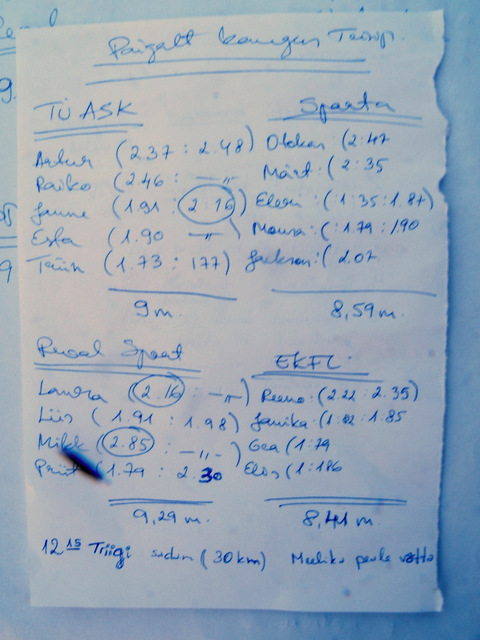 Paigalt kaugus
TÜ ASK
Artur (2.37 : 2.48)
Raiko (2.46 : —„—
Janne (1.91 : 2.16)
(1.90 —„—
(1.73 : 177)
9 m.
Sparta
(2.47
Märt: (2.35
Eleri: (1.35 : 1.87)
(1.79 : 1.90
Jackson: (2.07
8,59 m.
Reval Sport
Laura (2.16 : —„—)
Liis (1.91 : 1.98)
Mihk (2.85 : —„—)
Priit (1.79 : 2.30
9,29 m.
EKFL
(2.22 : 2.35)
Janika: (1.82 : 1.85
Gea (1.79
(1.186
8,41 m.
12 15 Triigi (30 km) peale